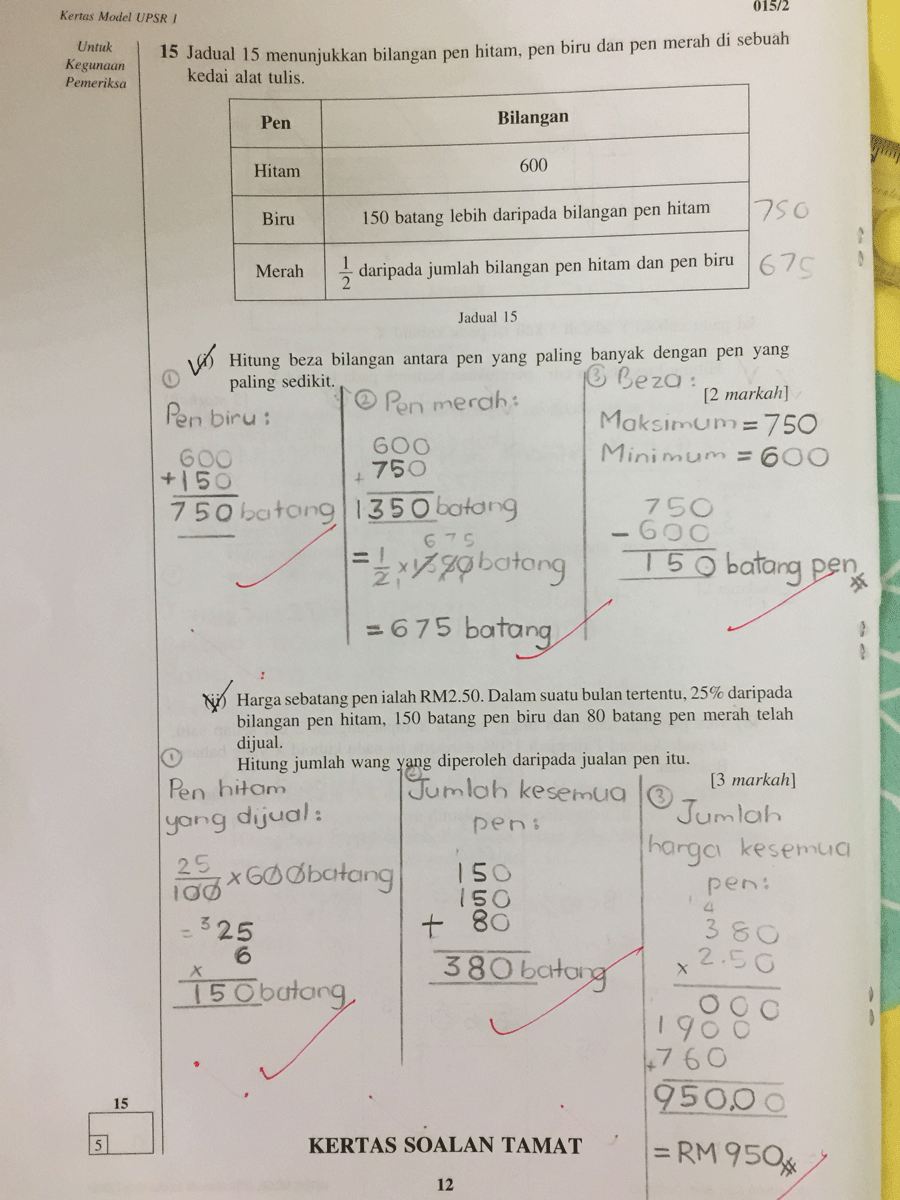 Kertas Model UPSR 1
015/2
Untuk
Kegunaan
Pemeriksa
15 Jadual 15 menunjukkan bilangan pen hitam, pen biru dan pen merah di sebuah
kedai alat tulis.
Pen Bilangan
Hitam 600
Biru 150 batang lebih daripada bilangan pen hitam 750
Merah 1/2 daripada jumlah bilangan pen hitam dan pen biru 675
Jadual 15
(i) Hitung beza bilangan antara pen yang paling banyak dengan pen yang
paling sedikit.
[2 markah]
① Pen biru:
600
+150
750 batang
② Pen merah:
600
+ 750
1350 batang
675
= 1/2 × 1350 batang
1
= 675 batang
③ Beza:
Maksimum = 750
Minimum = 600
750
- 600
150 batang pen
(ii) Harga sebatang pen ialah RM2.50. Dalam suatu bulan tertentu, 25% daripada
bilangan pen hitam, 150 batang pen biru dan 80 batang pen merah telah
dijual.
Hitung jumlah wang yang diperoleh daripada jualan pen itu.
[3 markah]
① Pen hitam
yang dijual:
25/100 × 600 batang
= ³25
6
×
150 batang
② Jumlah kesemua
pen:
1
150
150
+ 80
380 batang
③ Jumlah
harga kesemua
pen:
1 4
380
× 2.50
000
1900
+760
950.00
= RM 950
15
5
KERTAS SOALAN TAMAT
12